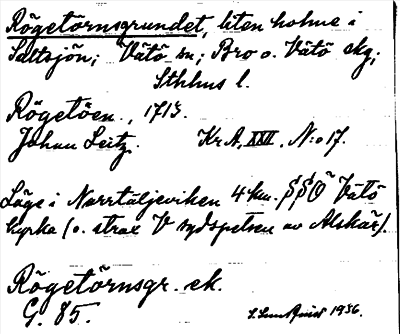 Rögetörnsgrundet, liten holme i
Saltsjön; Vätö sn; Bro o. Vätö skg;
Sthlms l.
Rögetöen., 1713.
Johan Leitz. Kr.A. XXII. N:o 17.
Läge i Norrtäljeviken 4 km. SSO Vätö
kyrka (o. strax V sydspetsen av Alskär).
Rögetörnsgr. ek.
G. 85.
1936.